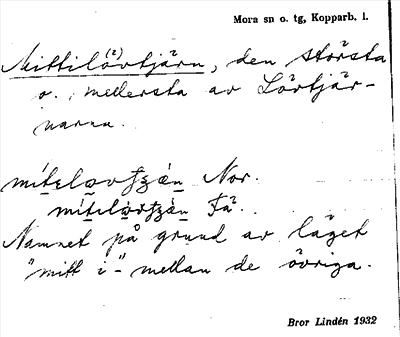 Mora sn o. tg, Kopparb. l.
Mittilövtjärn, (2) den största
o. mellersta av Lövtjär-
narna.
Nor.
Få.
Namnet på grund av läget
"mitt i" mellan de övriga.
Bror Lindén 1932